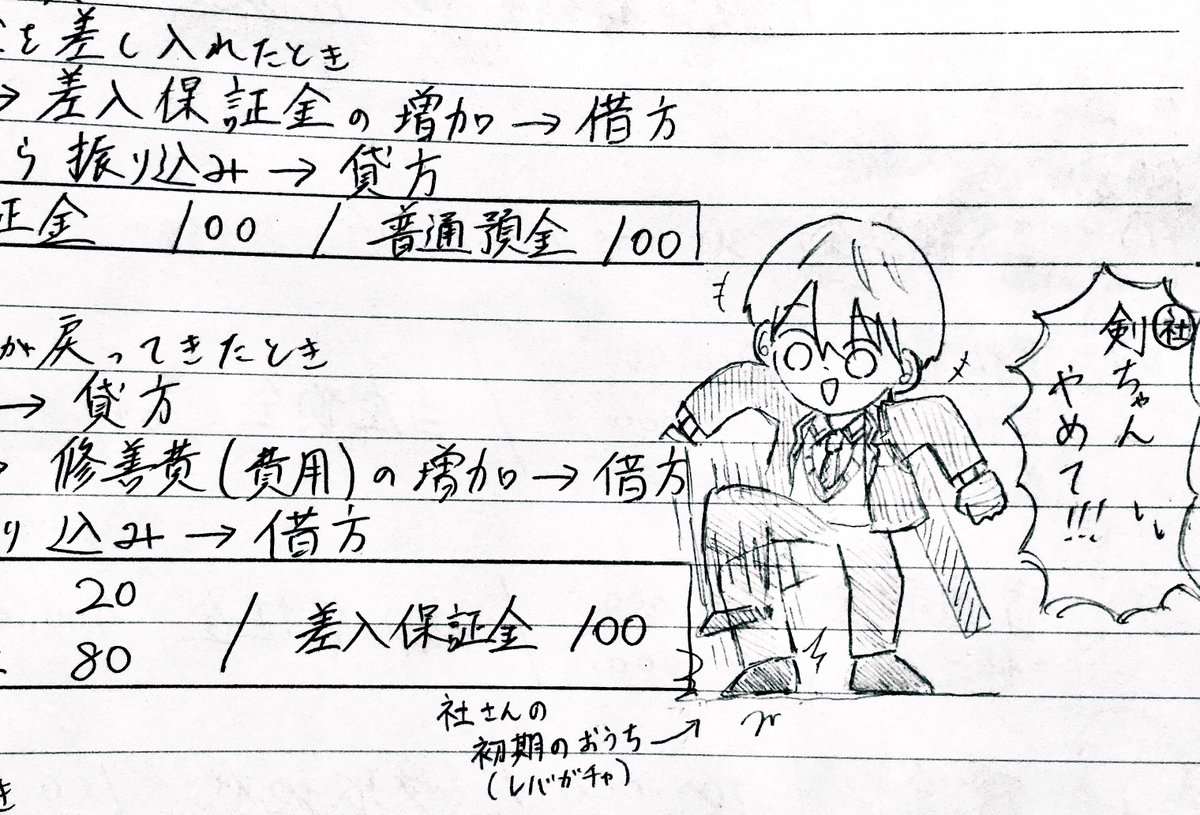 を差し入れたとき
→ 差入保証金の増加 → 借方
ら振り込み → 貸方
証金 100 / 普通預金 100
が戻ってきたとき
→ 貸方
修善費(費用)の増加 → 借方
り込み → 借方
20
80 / 差入保証金 100
社さんの
初期のおうち →
(レバガチャ)
き
社
剣ちゃん
やめて!!!